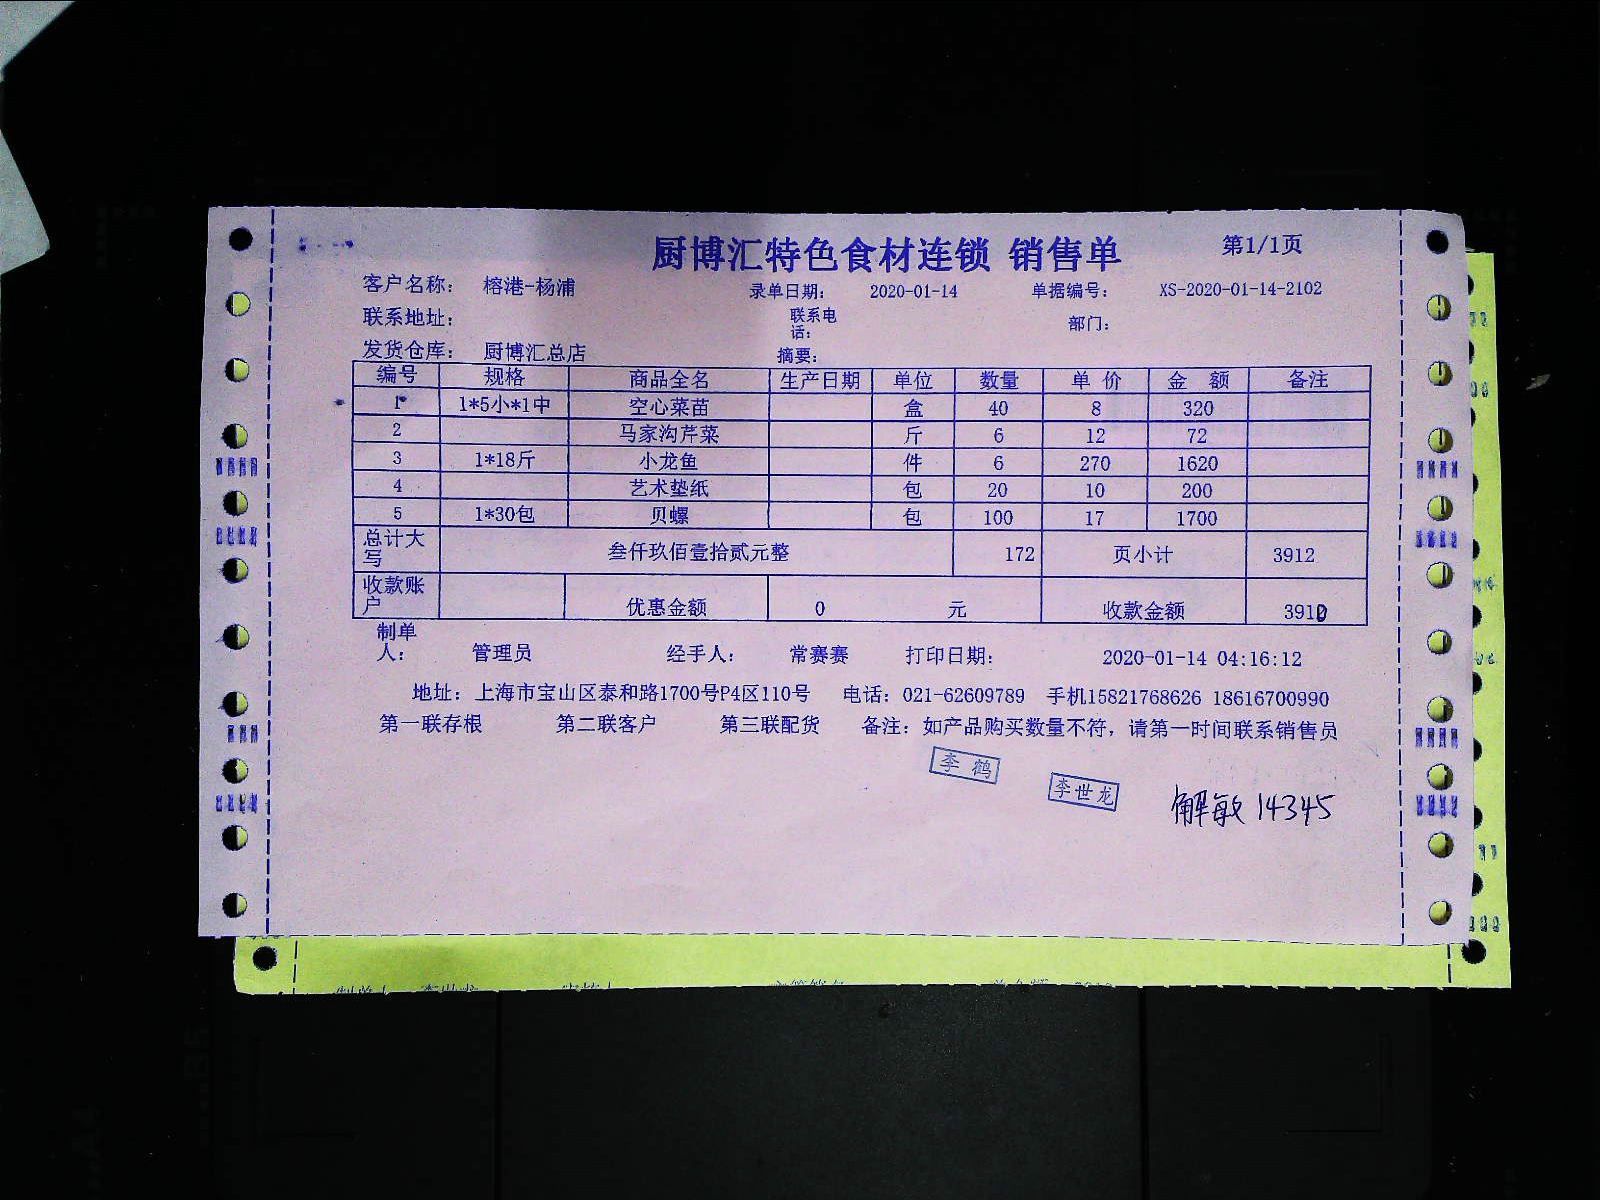 厨博汇特色食材连锁 销售单 第1/1页
客户名称: 榕港-杨浦 录单日期: 2020-01-14 单据编号: XS-2020-01-14-2102
联系地址: 联系电话: 部门:
发货仓库: 厨博汇总店 摘要:
编号 规格 商品全名 生产日期 单位 数量 单价 金额 备注
1 1*5小*1中 空心菜苗 盒 40 8 320
2 马家沟芹菜 斤 6 12 72
3 1*18斤 小龙鱼 件 6 270 1620
4 艺术垫纸 包 20 10 200
5 1*30包 贝螺 包 100 17 1700
总计大写 叁仟玖佰壹拾贰元整 172 页小计 3912
收款账户 优惠金额 0 元 收款金额
制单人: 管理员 经手人: 常赛赛 打印日期: 2020-01-14 04:16:12
地址: 上海市宝山区泰和路1700号P4区110号 电话: 021-62609789 手机15821768626 18616700990
第一联存根 第二联客户 第三联配货 备注: 如产品购买数量不符, 请第一时间联系销售员
李鹤
李世龙
解敏 14345